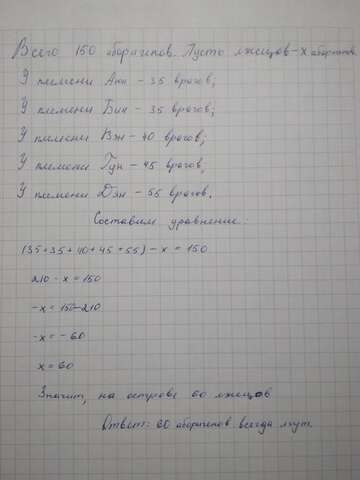 Всего 150 аборигенов. Пусть лжецов - x аборигенов.
У племени Анн - 35 врагов;
У племени Бин - 35 врагов;
У племени Вэн - 40 врагов;
У племени Гун - 45 врагов;
У племени Дэн - 55 врагов.
Составим уравнение:
(35+35+40+45+55) - x = 150
210 - x = 150
-x = 150-210
-x = -60
x = 60
Значит, на острове 60 лжецов
Ответ: 60 аборигенов всегда лгут.